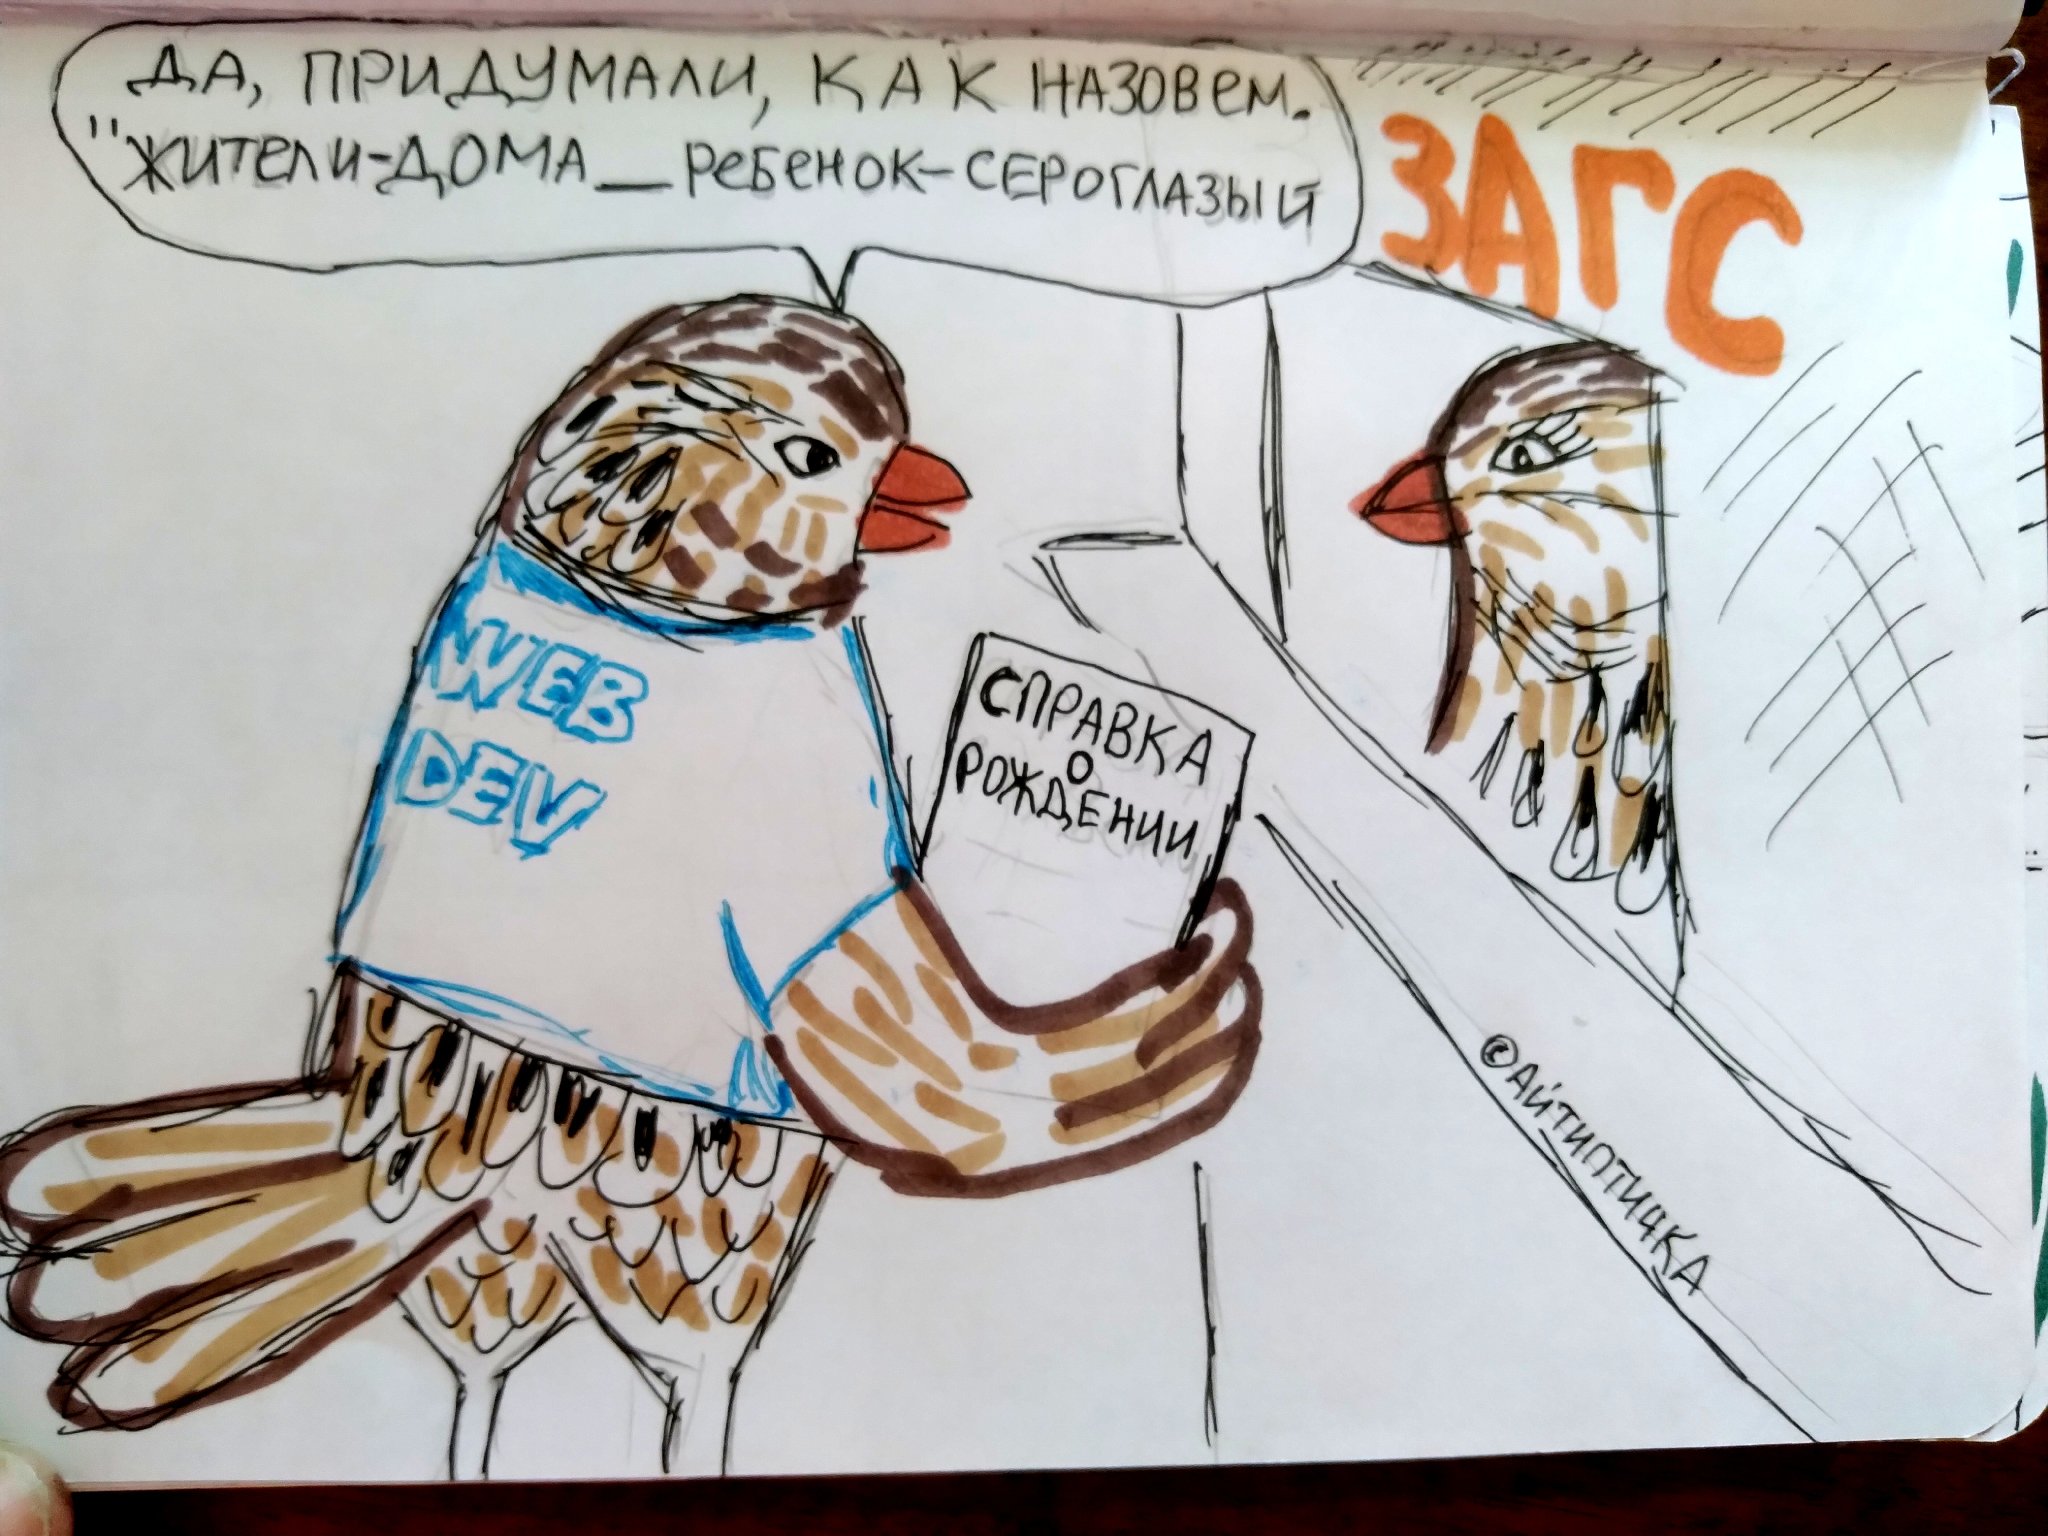 ДА, ПРИДУМАЛИ, КАК НАЗОВЕМ.
"ЖИТЕЛИ-ДОМА__РЕБЕНОК-СЕРОГЛАЗЫЙ
ЗАГС
WEB
DEV
СПРАВКА
О
РОЖДЕНИИ
©АЙТИПТИЧКА